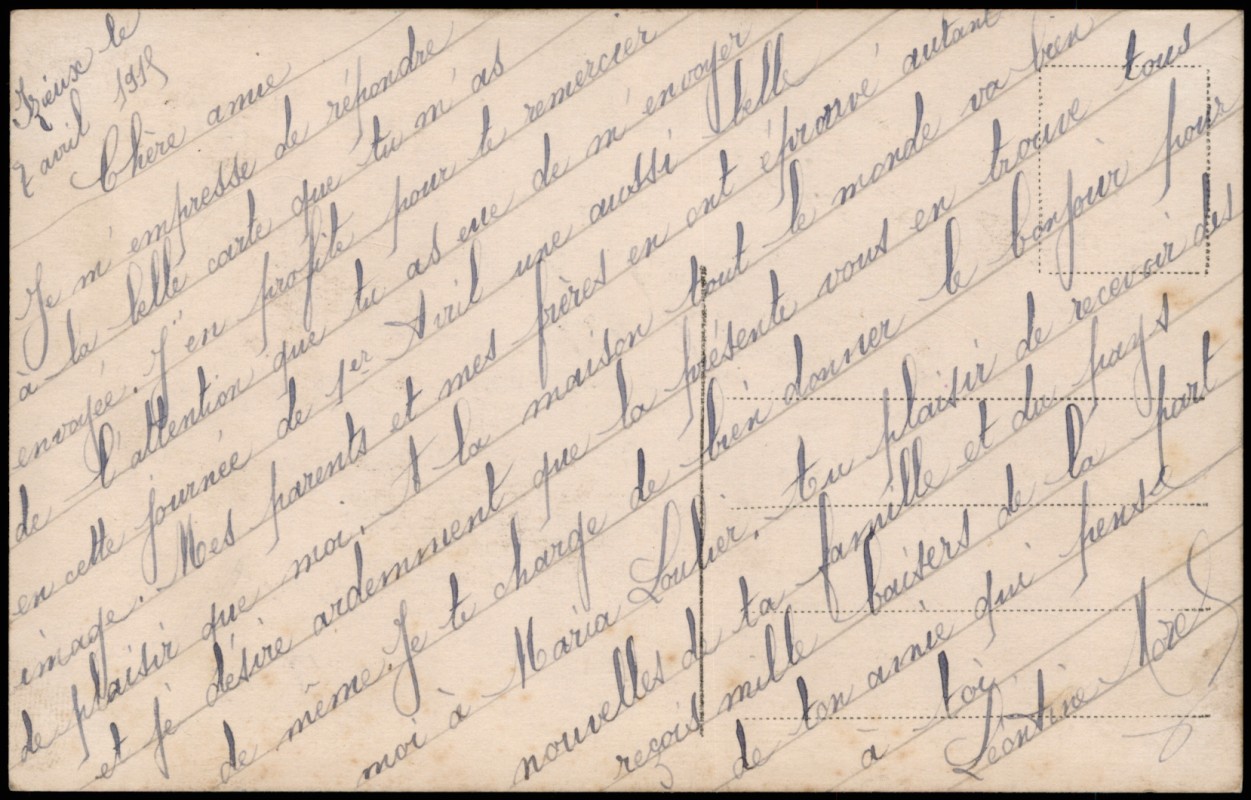 Izieux le
7 avril 1915
Chère amie
Je m'empresse de répondre
à la belle carte que tu m'as
envoyée. J'en profite pour te remercier
de l'attention que tu as eue de m'envoyer
en cette journée de 1er Avril une aussi belle
image. Mes parents et mes frères en ont éprouvé autant
de plaisir que moi. A la maison tout le monde va bien
et je désire ardemment que la présente vous en trouve tous
de même. Je te charge de bien donner le bonjour pour
moi à Maria Loubier. Tu plaisir de recevoir des
nouvelles de ta famille et du pays
reçois mille baisers de la part
de ton amie qui pense
à toi
Léontine Morel